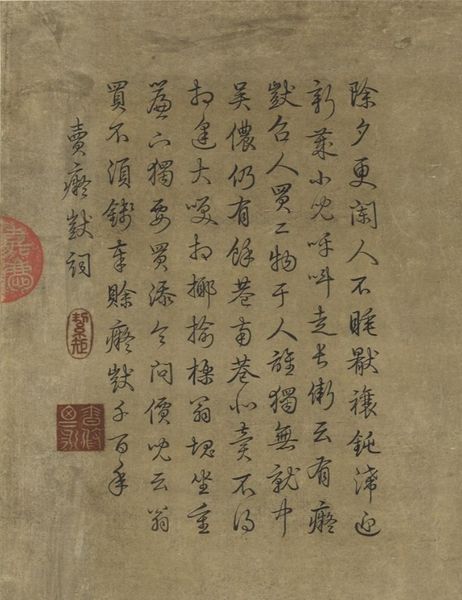 除夕更闌人不睡厭禳鈍滯迎
新歲小兒呼叫走長街云有癡
獃召人買二物于人誰獨無就中
吳儂仍有餘巷南巷北賣不得
相逢大笑相揶揄櫟翁塊坐重
簾下獨要買添令問價兒云翁
買不須錢奉賒癡獃千百年
賣癡獃詞